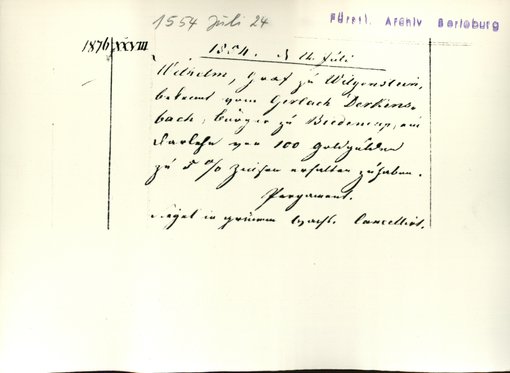 1554 Juli 24
Fürstl. Archiv Berleburg
1876 XXVIII
1554. Juli
Wilhelm, Graf zu Witgenstein,
bekennt vom Gerlach
bach, Bürger zu Biedencap, ein
Darlehn von 100 Goldgulden
zu 5 % Zinsen erhalten zu haben.
Pergament.
Siegel in grünem Wachs. Cancellirt.